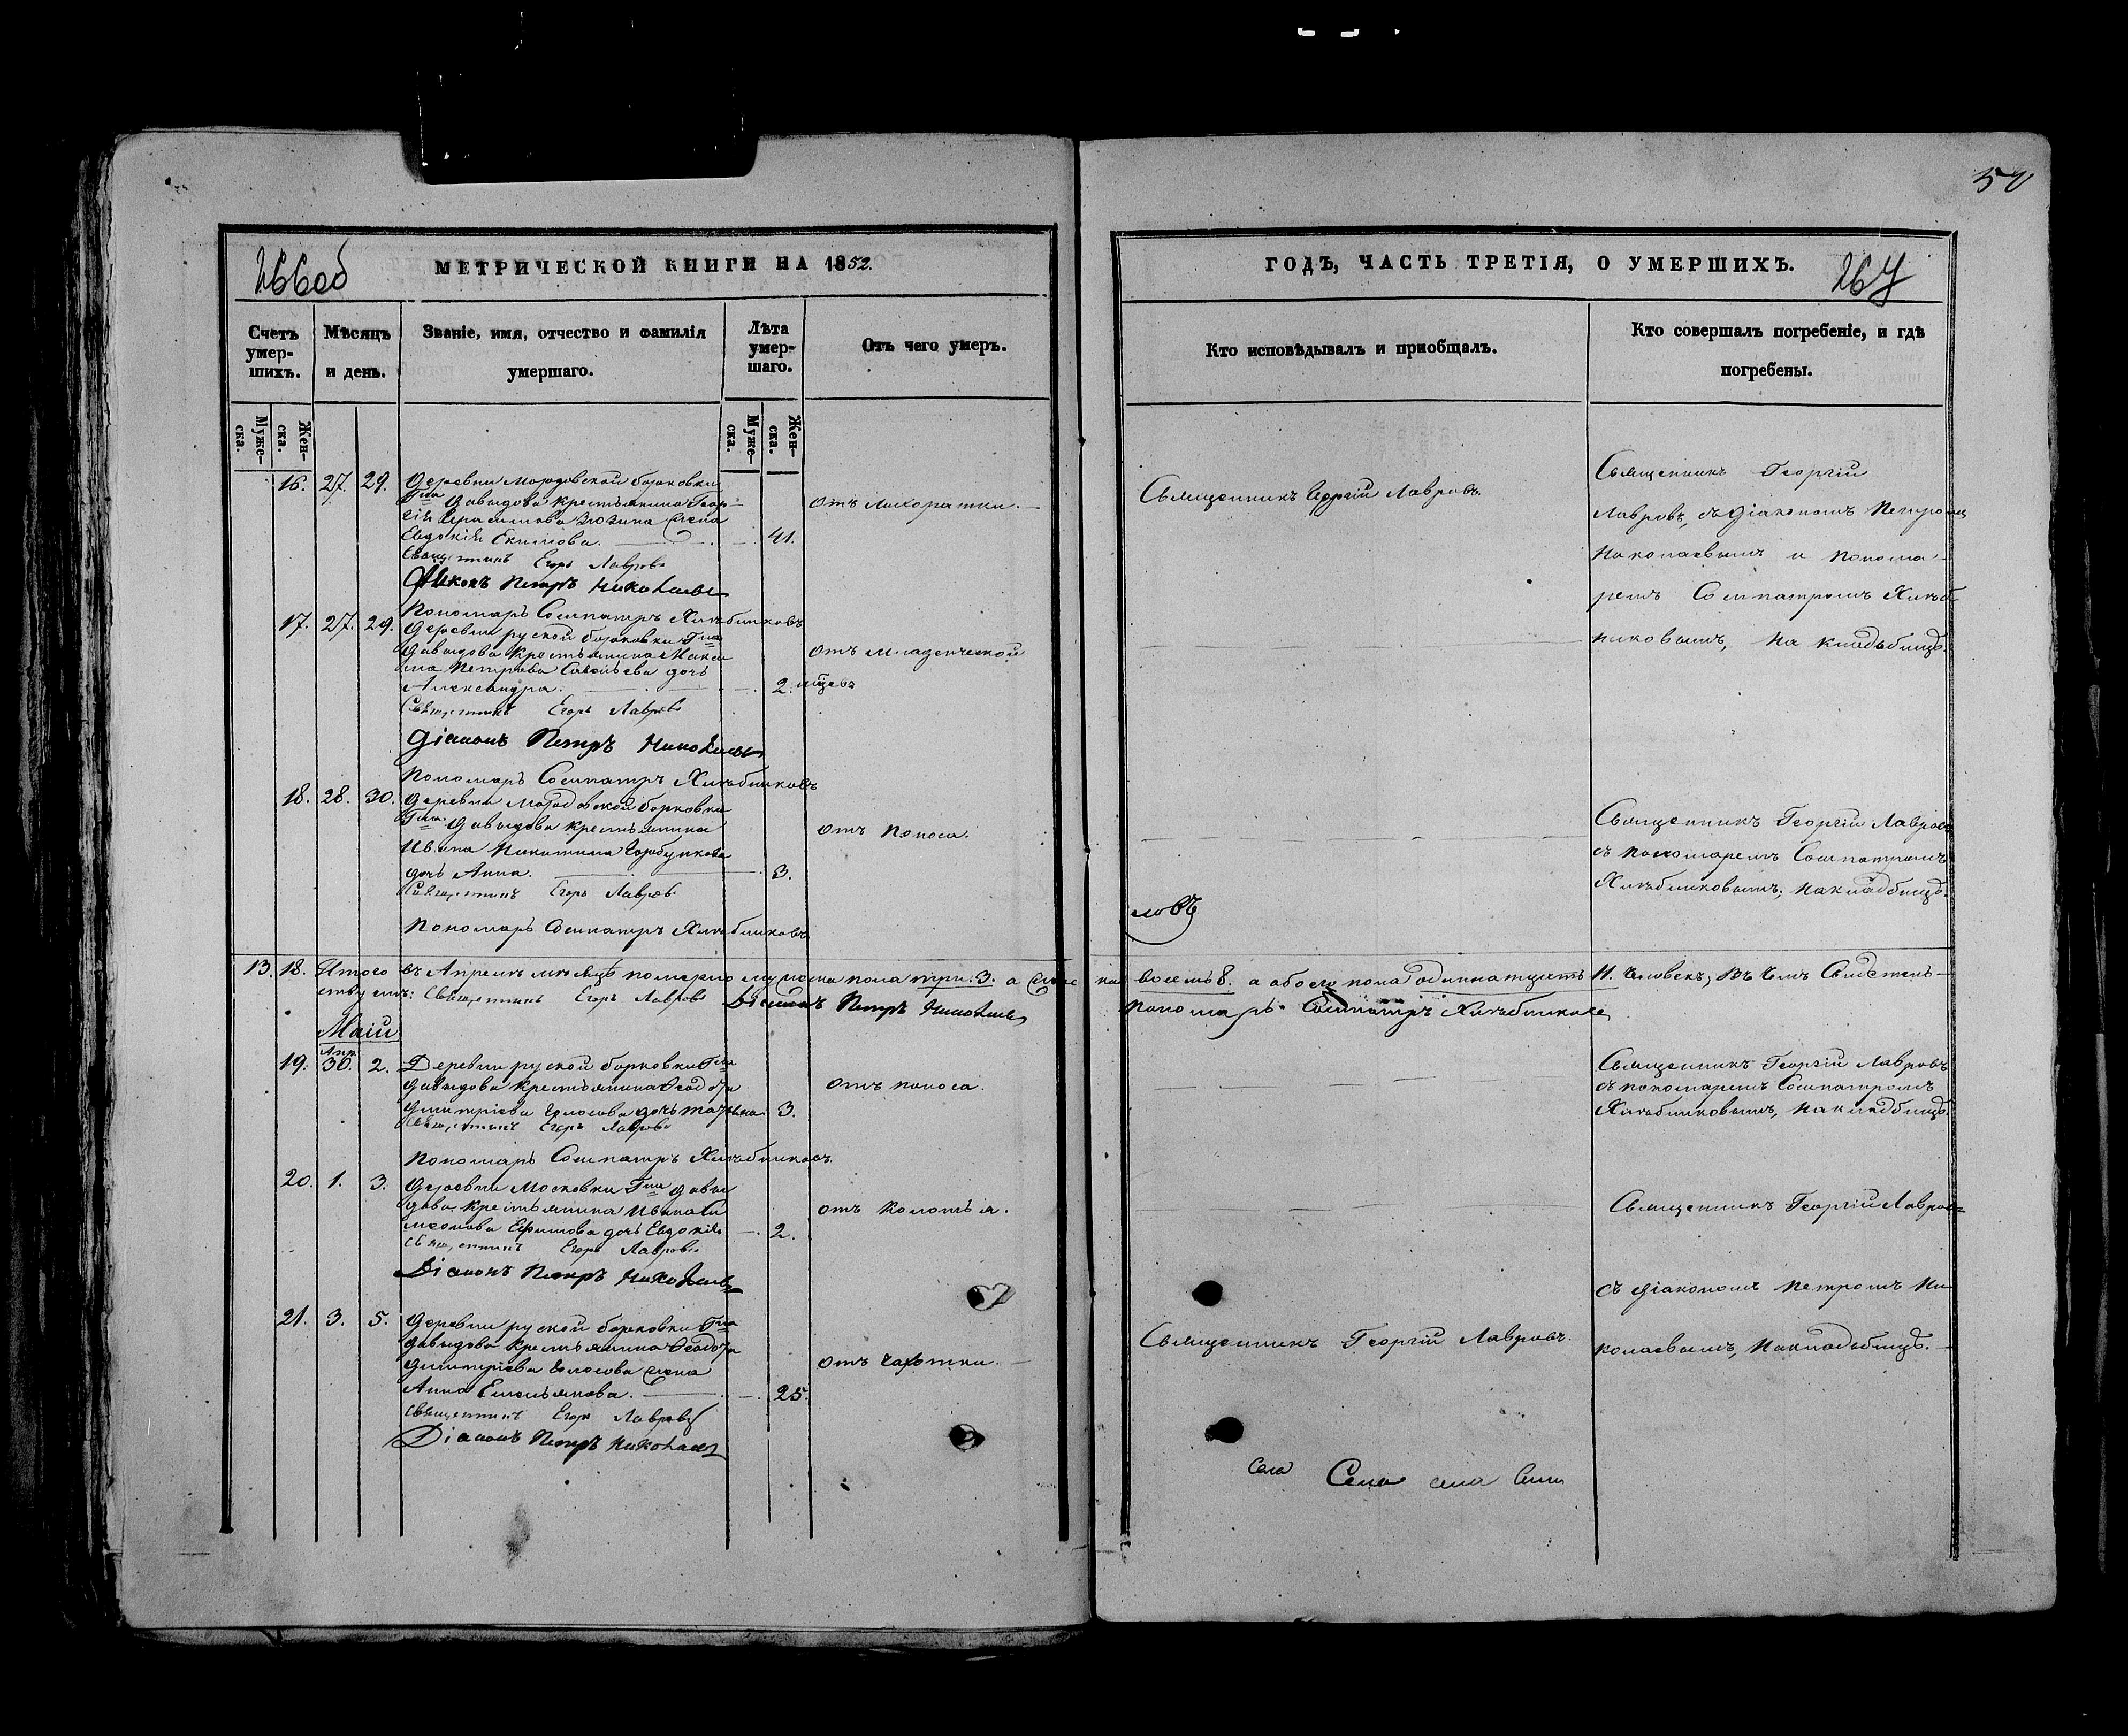 50
266об
МЕТРИЧЕСКОЙ КНИГИ НА 1852.
Счетъ умер-шихъ.
Мѣсяцъ и день.
Званіе, имя, отчество и фамилія умершаго.
Лѣта умер-шаго.
Отъ чего умеръ.
Муже-ска.
Жен-ска.
Муже-ска.
Жен-ска.
16. 27. 29. Деревни Мордовской борковки
Гна Давыдова крестьянина Геор-
гія Герасимова жена
Евдокія Екимова. 41.
отъ лихоратки.
Священникъ Егоръ Лавровъ
Діаконъ Петръ Николаевъ
Пономаръ Сосипатръ Хлѣбниковъ
17. 27. 29. Деревни руской борковки Гна
Давыдова крестьянина Макси
ма Петрова Савельева дочь
Александра. 2.
отъ младенческой
Священникъ Егоръ Лавровъ
Діаконъ Петръ Николаевъ
Пономаръ Сосипатръ Хлѣбниковъ
18. 28. 30. Деревни Мордовской борковки
Гна Давыдова крестьянина
Ивана Никитина Горбункова
дочь Анна. 3.
отъ поноса.
Священникъ Егоръ Лавровъ
Пономаръ Сосипатръ Хлѣбниковъ
13. 18. Итого въ Апрелѣ мѣсяцѣ померло мужеска пола три. 3. а женс
ствуемъ: Священникъ Егоръ Лавровъ Діаконъ Петръ Николаевъ
Маій
Апр.
19. 30. 2. Деревни руской борковки Гна
Давыдова крестьянина Ѳедота
Дмитріева дочь Татьяна 3.
отъ поноса.
Священникъ Егоръ Лавровъ
Пономаръ Сосипатръ Хлѣбниковъ.
20. 1. 3. Деревни Московки Гна Давы
дова крестьянина Ивана Си
меонова Ефимова дочь Евдокія 2.
отъ колотья.
Священникъ Егоръ Лавровъ
Діаконъ Петръ Николаевъ
21. 3. 5. Деревни руской борковки Гна
Давыдова крестьянина Ѳедота
Дмитріева жена
Анна Емельянова. 25.
отъ чахотки.
Священникъ Егоръ Лавровъ
Діаконъ Петръ Николаевъ
ГОДЪ, ЧАСТЬ ТРЕТІЯ, О УМЕРШИХЪ.
267
Кто исповѣдывалъ и пріобщалъ.
Кто совершалъ погребеніе, и гдѣ погребены.
Священникъ Георгій Лавровъ.
Священникъ Георгій
Лавровъ, съ Діакономъ Петромъ
Николаевымъ и понома-
ремъ Сосипатромъ Хлѣб
никовымъ, на кладбищѣ.
Священникъ Георгій Лавровъ
съ пономаремъ Сосипатромъ
Хлѣбниковымъ, на кладбищѣ.
ловъ
ка восемь 8. а обоего пола одиннатцать 11. человекъ, въ чемъ Свидетель-
Пономаръ Сосипатръ Хлѣбниковъ
Священникъ Георгій Лавровъ
съ пономаремъ Сосипатромъ
Хлѣбниковымъ, на кладбищѣ.
Священникъ Георгій Лавровъ
съ Діакономъ Петромъ Ни
колаевымъ, на кладбищѣ.
Священникъ Георгій Лавровъ.
Села Села села